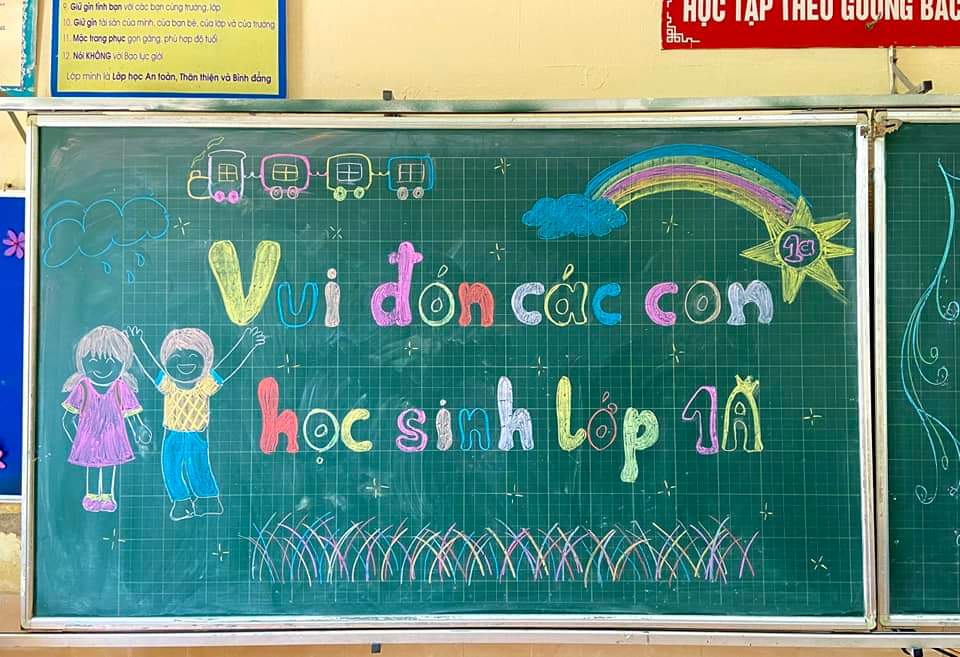 9. Giữ gìn tình bạn với các bạn cùng trường, lớp
10. Giữ gìn tài sản của mình, của bạn bè, của lớp và của trường
11. Mặc trang phục gọn gàng, phù hợp độ tuổi
12. Nói KHÔNG với Bạo lực giới
Lớp mình là Lớp học An toàn, Thân thiện và Bình đẳng
HỌC TẬP THEO GƯƠNG BÁC
1a
Vui đón các con
học sinh lớp 1A